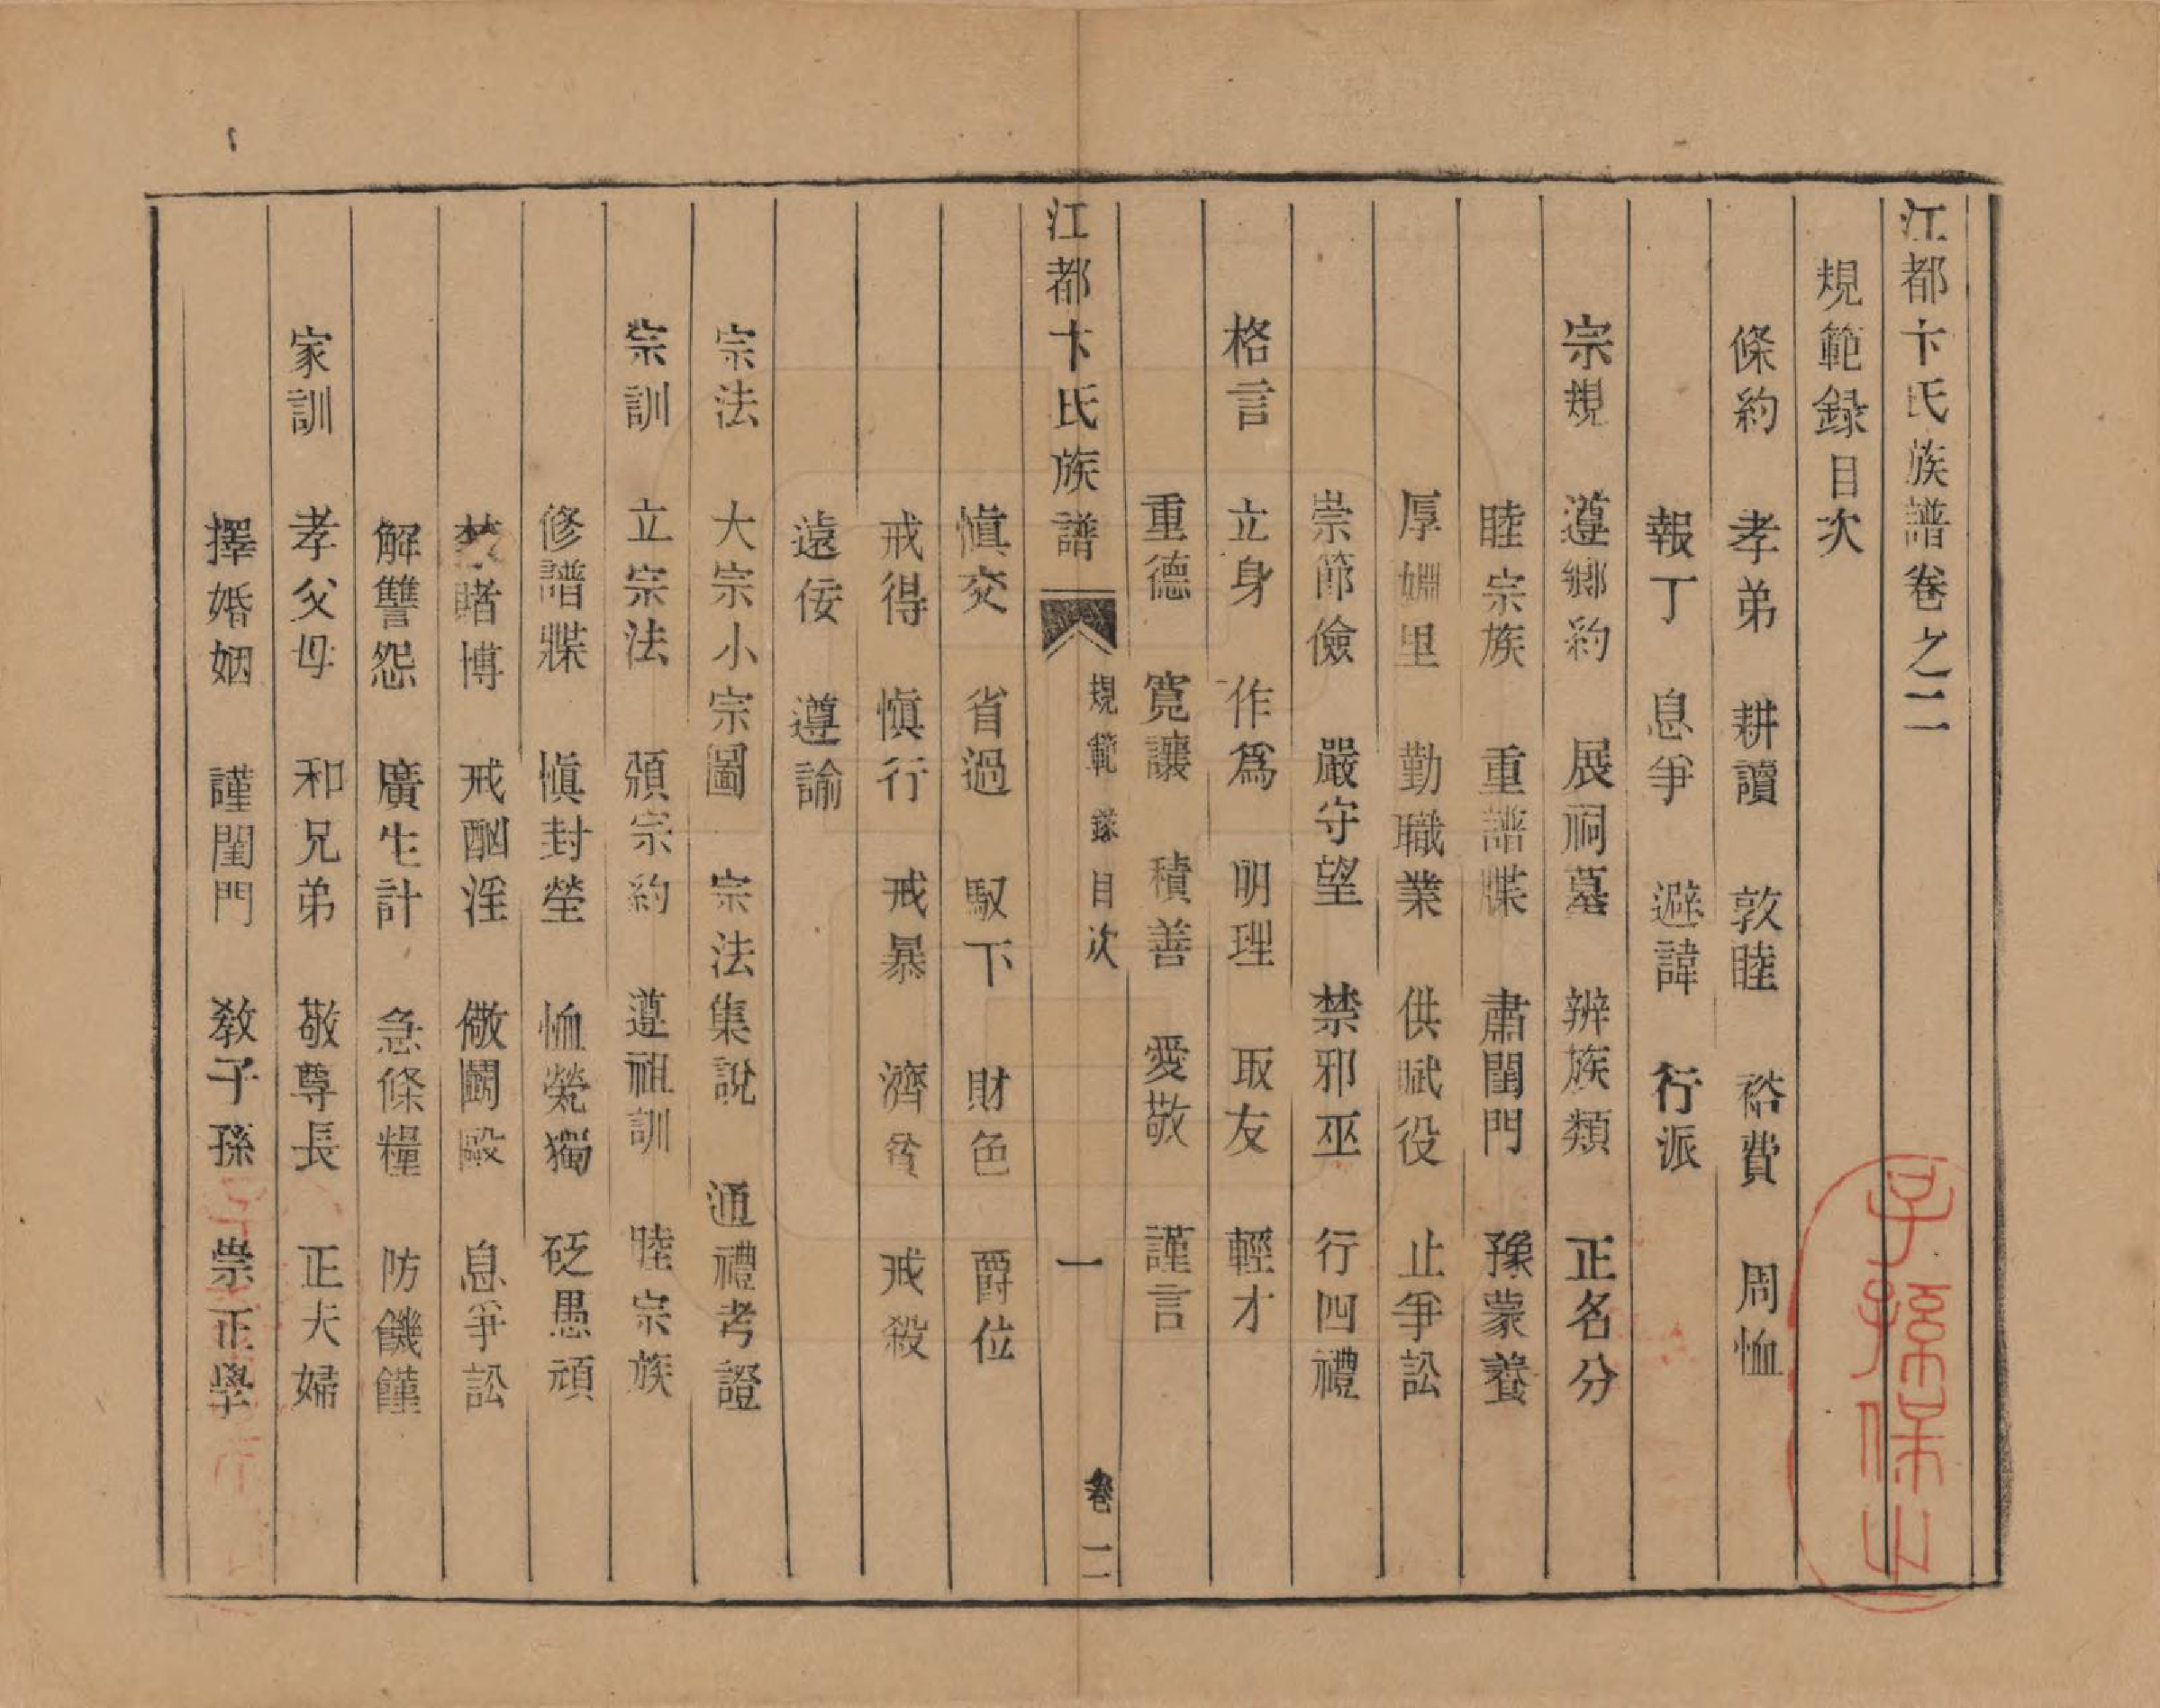 江都卞氏族譜卷之二
規範録目次
條約 孝弟 耕讀 敦睦 裕費 周恤
報丁 息爭 避諱 行派
宗規 遵鄉約 展祠墓 辨族類 正名分
睦宗族 重譜牒 肅閨門 豫蒙養
厚婣里 勤職業 供賦役 止爭訟
崇節儉 嚴守望 禁邪巫 行四禮
格言 立身 作爲 明理 取友 輕才
重德 寛讓 積善 愛敬 謹言
江都卞氏族譜 規範錄目次 一 卷二
愼交 省過 馭下 財色 爵位
戒得 愼行 戒暴 濟貧 戒殺
遠佞 遵諭
宗法 大宗小宗圖 宗法集說 通禮考證
宗訓 立宗法 頒宗約 遵祖訓 睦宗族
修譜牒 愼封塋 恤煢獨 砭愚頑
禁賭博 戒酗淫 儆鬭毆 息爭訟
解讐怨 廣生計 急條糧 防饑饉
家訓 孝父母 和兄弟 敬尊長 正夫婦
擇婚姻 謹閨門 敎子孫 崇正學
子孫保之